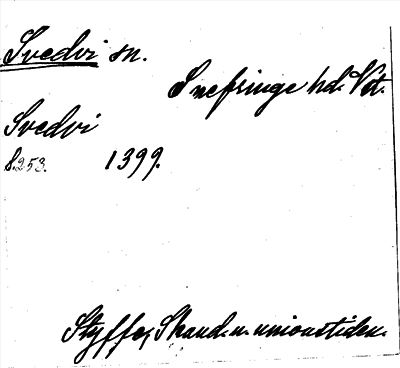 Svedvi sn.
Snefringe hd. Vst.
Svedvi
S. 253. 1399.
Styffe, Skand. u. unionstiden.